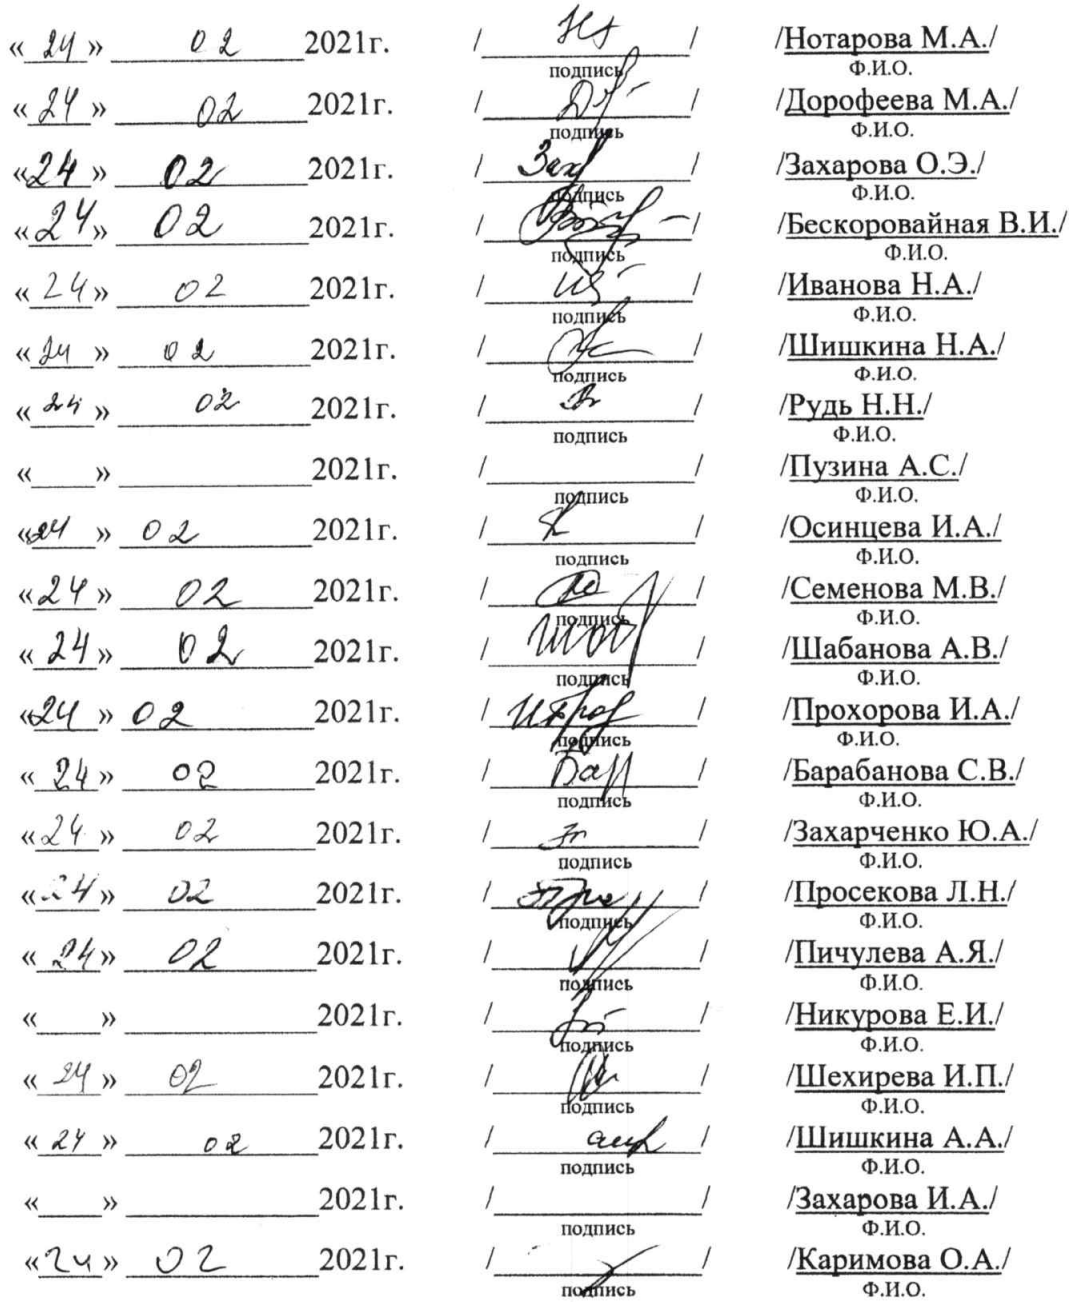 « 24 » 02 2021г. / / /Нотарова М.А./
подпись Ф.И.О.
« 24 » 02 2021г. / / /Дорофеева М.А./
подпись Ф.И.О.
« 24 » 02 2021г. / Зах / /Захарова О.Э./
подпись Ф.И.О.
« 24 » 02 2021г. / / /Бескоровайная В.И./
подпись Ф.И.О.
« 24 » 02 2021г. / / /Иванова Н.А./
подпись Ф.И.О.
« 24 » 02 2021г. / / /Шишкина Н.А./
подпись Ф.И.О.
« 24 » 02 2021г. / / /Рудь Н.Н./
подпись Ф.И.О.
« » 2021г. / / /Пузина А.С./
подпись Ф.И.О.
« 24 » 02 2021г. / / /Осинцева И.А./
подпись Ф.И.О.
« 24 » 02 2021г. / / /Семенова М.В./
подпись Ф.И.О.
« 24 » 02 2021г. / / /Шабанова А.В./
подпись Ф.И.О.
« 24 » 02 2021г. / / /Прохорова И.А./
подпись Ф.И.О.
« 24 » 02 2021г. / / /Барабанова С.В./
подпись Ф.И.О.
« 24 » 02 2021г. / / /Захарченко Ю.А./
подпись Ф.И.О.
« 24 » 02 2021г. / / /Просекова Л.Н./
подпись Ф.И.О.
« 24 » 02 2021г. / / /Пичулева А.Я./
подпись Ф.И.О.
« » 2021г. / / /Никурова Е.И./
подпись Ф.И.О.
« 24 » 02 2021г. / / /Шехирева И.П./
подпись Ф.И.О.
« 24 » 02 2021г. / / /Шишкина А.А./
подпись Ф.И.О.
« » 2021г. / / /Захарова И.А./
подпись Ф.И.О.
« 24 » 02 2021г. / / /Каримова О.А./
подпись Ф.И.О.